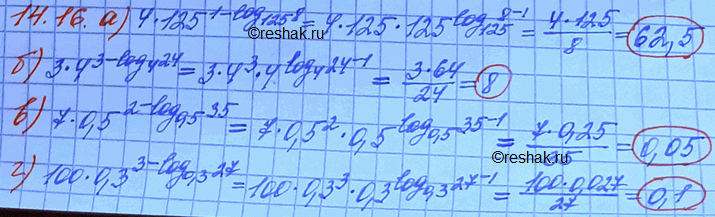 14.16. а) 4·125^{1-log_{125}8} = 4·125·125^{log_{125}8^{-1}} = \frac{4·125}{8} = 62,5
©reshak.ru
б) 3·4^{3-log_4 24} = 3·4^3·4^{log_4 24^{-1}} = \frac{3·64}{24} = 8
в) 7·0,5^{2-log_{0,5}35} = 7·0,5^2·0,5^{log_{0,5}35^{-1}} = \frac{7·0,25}{35} = 0,05
©reshak.ru
г) 100·0,3^{3-log_{0,3}27} = 100·0,3^3·0,3^{log_{0,3}27^{-1}} = \frac{100·0,027}{27} = 0,1